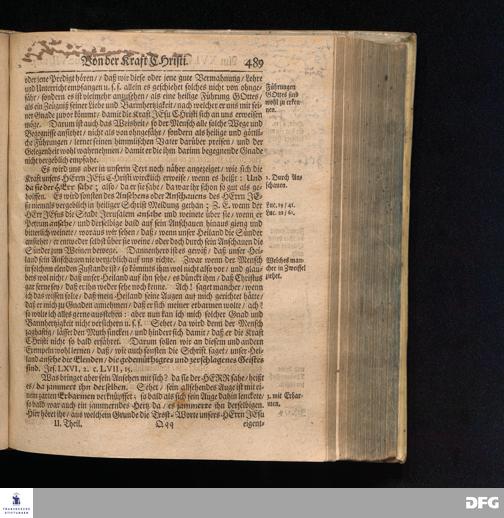 Von der Kraft CHristi. 489
oder jene Predigt hören/ daß wir diese oder jene gute Vermahnung/ Lehre
und Unterricht empfangen u. s. f. allein es geschiehet solches nicht von ohnge-
fähr/ sondern es ist vielmehr anzusehen/ als eine heilige Führung GOttes/
als ein Zeugniß seiner Liebe und Barmhertzigkeit/ nach welcher er uns mit sei-
ner Gnade zuvor kömmt/ damit die Kraft JEsu CHristi sich an uns erweisen
möge. Darum ist auch das Weisheit/ so der Mensch alle solche Wege und
Begegnisse ansiehet/ nicht als von ohngefähr/ sondern als heilige und göttli-
che Führungen/ lernet seinen himmlischen Vater darüber preisen/ und der
Gelegenheit wohl wahrnehmen/ damit er die ihm darinn begegnende Gnade
nicht vergeblich empfahe.
Führungen
GOttes sind
wohl zu erken-
nen.
Es wird uns aber in unserm Text noch näher angezeiget/ wie sich die
Kraft unsers HErrn JEsu CHristi wircklich erweise/ wenn es heißt: Und
da sie der HErr sahe; also/ da er sie sahe/ da war ihr schon so gut als ge-
holffen. Es wird sonsten des Ansehens oder Anschauens des HErrn JE-
su niemals vergeblich in heiliger Schrift Meldung gethan; Z. E. wenn der
HErr JEsus die Stadt Jerusalem ansahe und weinete über sie/ wenn er
Petrum ansahe/ und derselbige bald auf sein Anschauen hinaus gieng und
bitterlich weinete/ woraus wir sehen/ daß/ wenn unser Heiland die Sünder
ansiehet/ er entweder selbst über sie weine/ oder doch durch sein Anschauen die
Sünder zum Weinen bewege. Dannenhero ist es gewiß/ daß unser Hei-
land sein Anschauen nie vergeblich auf uns richte. Zwar wenn der Mensch
in solchem elenden Zustande ist/ so kömmts ihm wol nicht also vor/ und glau-
bet es wol nicht/ daß unser Heiland auf ihn sehe/ es dünckt ihm/ daß Christus
gar ferne sey/ daß er ihn weder sehe noch kenne. Ach! saget mancher/ wenn
ich das wissen solte/ daß mein Heiland seine Augen auf mich gerichtet hätte/
daß er mich zu Gnaden annehmen/ daß er sich meiner erbarmen wolte/ ach!
so wolte ich alles gerne ausstehen: aber nun kan ich mich solcher Gnad und
Barmhertzigkeit nicht versichern u. s. f. Sehet/ da wird denn der Mensch
zaghaftig/ lässet den Muth sincken/ und hindert sich damit/ daß er die Kraft
Christi nicht so bald erfähret. Darum sollen wir an diesem und andern
Exempeln wohl lernen/ daß/ wie auch sonsten die Schrift saget/ unser Hei-
land ansehe die Elenden/ die gedemüthigtes und zerschlagenes Geistes
sind. Jes. LXVI, 2. c. LVII, 15.
1. Durch An-
schauen.
Luc. 19/ 41.
Luc. 22/ 61.
Welches man-
cher in Zweiffel
ziehet.
Was bringet aber sein Ansehen mit sich? da sie der HERR sahe/ heißt
es/ da jammert ihn derselben. Sehet/ sein allsehendes Auge ist mit ei-
nem zarten Erbarmen verknüpffet; so bald als sich sein Auge dahin lenckete/
so bald war auch ein jammerndes Hertz da/ es jammerte ihn derselbigen.
Hier höret ihr/ aus welchem Grunde die Trost-Worte unsers HErrn JEsu
2. mit Erbar-
men.
II. Theil. Qqq eigent-
FRANCKESCHE
STIFTUNGEN
DFG